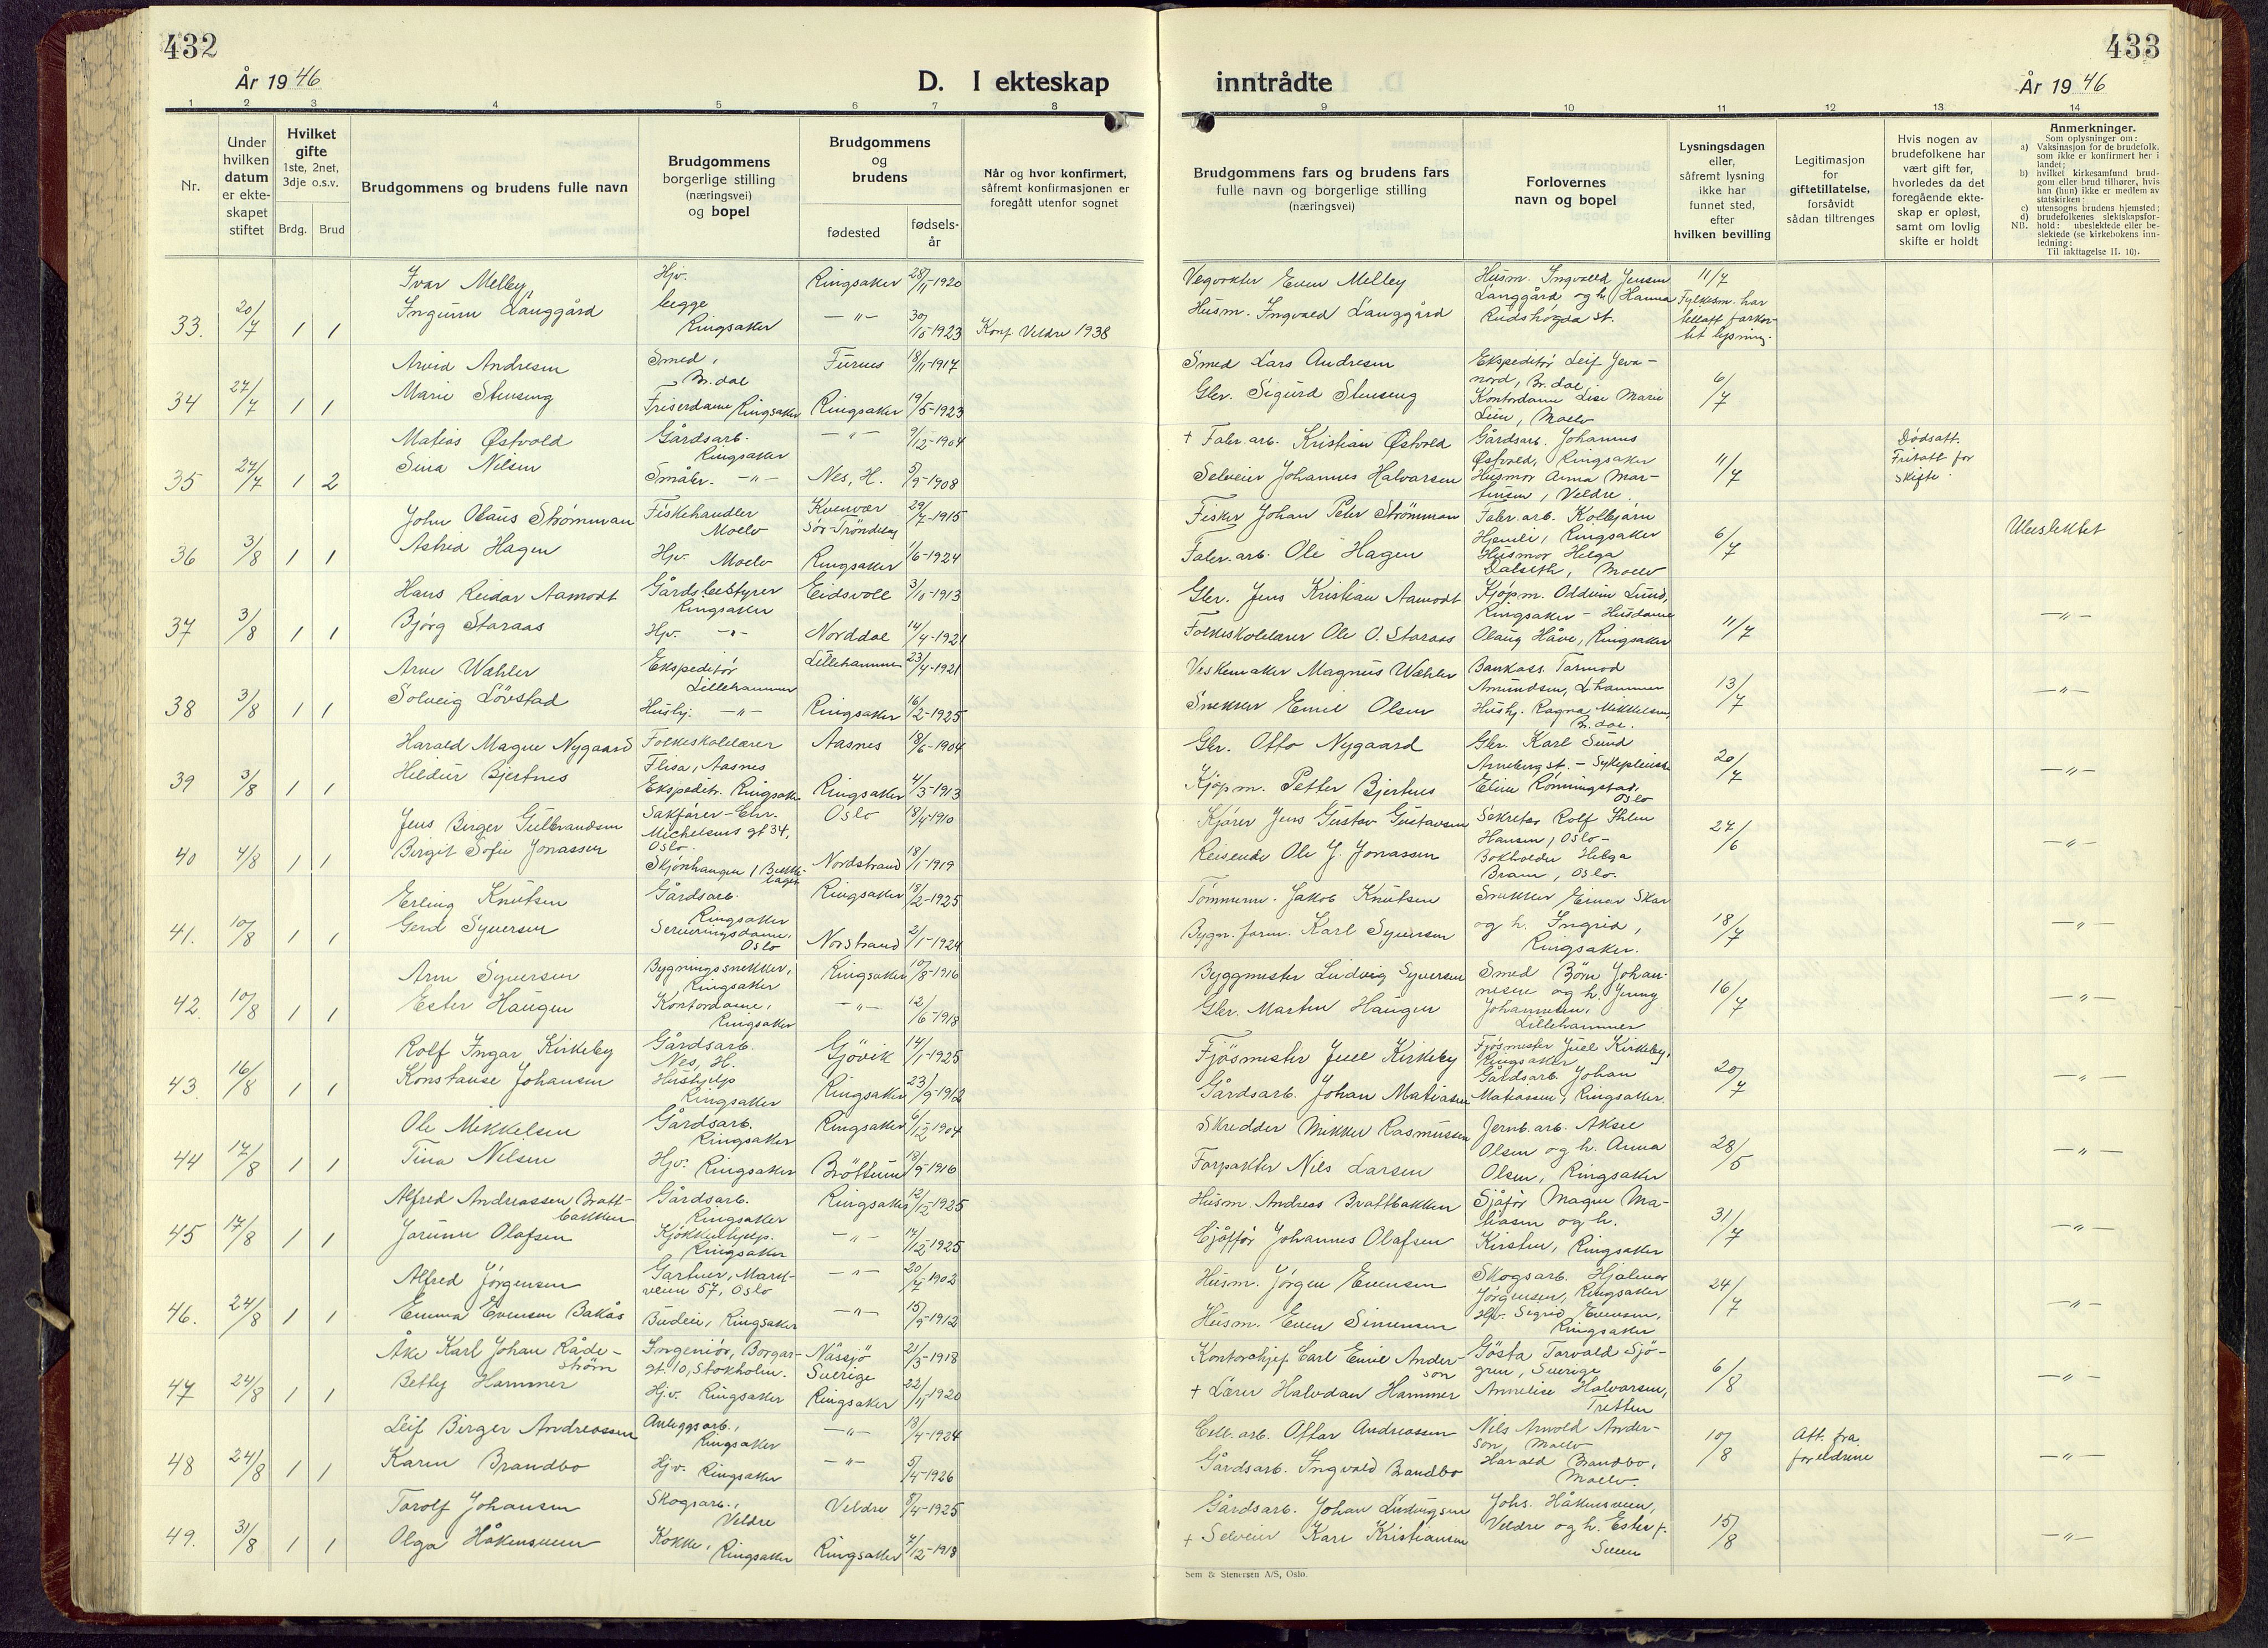 432
År 1946
D. I ekteskap
1 2 3 4 5 6 7 8
Nr.
Under hvilken datum er ekteskapet stiftet
Hvilket gifte 1ste, 2net, 3dje o.s.v.
Brdg. Brud
Brudgommens og brudens fulle navn
Brudgommens borgerlige stilling (næringsvei) og bopel
Brudgommens og brudens
fødested fødselsår
Når og hvor konfirmert, såfremt konfirmasjonen er foregått utenfor sognet
33. 20/7 1 1
Ivar Melby Hjv. Ringsaker 28/11-1920
Ingunn Langgård begge Ringsaker —"— 30/10-1923 Konf. Veldre 1938
34 27/7 1 1
Arvid Andresen Smed, Br.dal Furnes 18/11-1917
Marie Stensing Friserdame Ringsaker Ringsaker 19/5-1923
35 27/7 1 2
Matias Østvold Gårdsarb. Ringsaker —"— 9/12-1904
Sina Nilsen Småbr. —"— Nes, H. 5/9-1908
36 3/8 1 1
John Olaus Strömman Fiskehandler Moelv Kvenvær Sör-Tröndelag 29/7-1915
Astrid Hagen Hjv. Moelv Ringsaker 1/6-1924
37 3/8 1 1
Hans Reidar Aamodt Gårdsbestyrer Ringsaker Eidsvoll 3/10-1913
Bjørg Staraas Hjv. —"— Norddal 14/4-1921
38 3/8 1 1
Arne Wæhler Ekspeditör Lillehammer Lillehammer 23/4-1921
Solveig Lövstad Hushj. —"— Ringsaker 16/2-1925
39 3/8 1 1
Harald Magne Nygaard Folkeskolelærer Flisa, Aasnes Aasnes 18/6-1904
Hildur Bjertnes Ekspeditr. Ringsaker Ringsaker 4/3-1913
40 4/8 1 1
Jens Birger Gulbrandsen Sakförer-Chr. Michelsens gt 34, Oslo. Oslo 18/4-1910
Birgit Sofie Jonassen Skjönhaugen, Bekkelaget Nordstrand 18/1-1919
41. 10/8 1 1
Erling Knutsen Gårdsarb. Ringsaker Ringsaker 18/2-1925
Gerd Syversen Serveringsdame, Oslo Norstrand 2/1-1924
42. 10/8 1 1
Arne Syversen Bygningssnekker, Ringsaker Ringsaker 10/8-1916
Ester Haugen Kontordame, Ringsaker —"— 12/6-1918
43. 16/8 1 1
Rolf Ingar Kirkeby Gårdsarb. Nes, H. Gjövik 14/1-1925
Konstanse Johansen Hushjelp Ringsaker Ringsaker 23/9-1912
44 17/8 1 1
Ole Mikkelsen Gårdsarb. Ringsaker Ringsaker 6/12-1904
Tina Nilsen Hjv. Ringsaker Bröttum 18/9-1916
45 17/8 1 1
Alfred Andreassen Brattbakken Gårdsarb. Ringsaker Ringsaker 12/12-1925
Jorunn Olafsen Kjökkenhjelp. Ringsaker —"— 14/12-1925
46. 24/8 1 1
Alfred Jörgensen Gartner, Markveien 57, Oslo —"— 20/7-1902
Emma Evensen Bakås Budeie, Ringsaker —"— 15/9-1912
47 24/8 1 1
Åke Karl Johan Rådeström Ingeniör, Borgargt. 10, Stokholm. Nässjö Sverige 21/3-1918
Betty Hammer Hjv. Ringsaker Ringsaker 22/11-1920
48 24/8 1 1
Leif Birger Andreassen Anleggsarb., Ringsaker —"— 18/4-1924
Karin Brandbo Hjv. Ringsaker —"— 5/4-1926
49. 31/8 1 1
Torolf Johansen Skogsarb., Veldre Veldre 8/4-1925
Olga Håkensveen Kokke, Ringsaker Ringsaker 7/12-1918
433
inntrådte
År 1946
9 10 11 12 13 14
Brudgommens fars og brudens fars fulle navn og borgerlige stilling (næringsvei)
Forlovernes navn og bopel
Lysningsdagen eller, såfremt lysning ikke har funnet sted, efter hvilken bevilling
Legitimasjon for giftetillatelse, forsåvidt sådan tiltrenges
Hvis nogen av brudefolkene har vært gift før, hvorledes da det foregående ekteskap er opløst, samt om lovlig skifte er holdt
Anmerkninger.
Som oplysninger om:
a) Vaksinasjon for de brudefolk, som ikke er konfirmert her i landet;
b) hvilket kirkesamfund brudgom eller brud tilhører, hvis han (hun) ikke er medlem av statskirken;
c) utensogns brudens hjemsted;
d) brudefolkenes slektskapsforhold: ubeslektede eller beslektede (se kirkebokens innledning:
NB.
Til iakttagelse II. 10).
Vegvokter Even Melby Husm. Ingvald Jensen Langgård og h. Hanna Rudshögda st. 11/7 Fylkesm. har tillatt forkortet lysning.
Husm. Ingvald Langgård
Smed Lars Andresen Ekspeditör Leif Jevanord, Br.dal, Kontordame Lise Marie Lien, Moelv 6/7
Gbr. Sigurd Stensing
+ Fabr.arb. Kristian Østvold Gårdsarb. Johannes Østvold, Ringsaker Husmor Anna Martinsen, Veldre. 11/7 Dödsatt. Fritatt for skifte.
Selveier Johannes Halvorsen
Fisker Johan Peter Strömman Fabr.arb. Kolbjørn Hjemli, Ringsaker Husmor Helga Dalseth, Moelv 6/7 Ubeslektet
Fabr.arb. Ole Hagen
Gbr. Jens Kristian Aamodt Kjöpm. Oddvin Lund, Ringsaker - Husdame Olaug Håve, Ringsaker 11/7 —"—
Folkeskolelærer Ole O. Staraas
Veskemaker Magnus Wæhler Bankass. Tormod Amundsen, L.hammer Hushj. Ragna Mikkelsen, Br.dal. 13/7 —"—
Snekker Emil Olsen
Gbr. Otto Nygaard Gbr. Karl Sund Arneberg st. - Sykepleierske Eline Rönningstad, Oslo 20/7 —"—
Kjöpm. Petter Bjertnes
Kjörer Jens Gustav Gustavsen Sekretær Rolf Ihlen Hansen, Oslo - Bokholder Helga Bram, Oslo. 27/6 —"—
Reisende Ole J. Jonassen
Tömmerm. Jakob Knutsen Snekker Einar Skar og h. Ingrid, Ringsaker. 18/7 —"—
Bygn.form. Karl Syversen
Byggmester Ludvig Syversen Smed Börre Johannesen og h. Jenny Johannesen, Lillehammer 16/7 —"—
Gbr. Martin Haugen
Fjösmester Juel Kirkeby Fjösmester Juel Kirkeby, Ringsaker, Gårdsarb. Johan Matiassen, Ringsaker. 20/7 —"—
Gårdsarb. Johan Matiasen
Skredder Mikkel Rasmussen Jernb.arb. Aksel Olsen og h. Anna Olsen, Ringsaker 28/5 —"—
Forpakter Nils Larsen
Husm. Andreas Brattbakken Sjåför Magne Matiasen og h. Kirsten, Ringsaker 31/7 —"—
Sjåför Johannes Olafsen
Husm. Jörgen Evensen Skogsarb. Hjalmar Jörgensen, Ringsaker Hjv. Sigrid Evensen, Ringsaker 24/7 —"—
Husm. Even Simensen
Kontorchjef Carl Emil Anderson Gösta Torvald Sjögren, Sverige Annelise Halvorsen, Tretten 6/8 —"—
+ Lærer Halvdan Hammer
Cell.arb. Ottar Andreassen Nils Arnold Anderson, Moelv Harald Brandbo, Moelv. 10/8 Att. fra foreldrene —"—
Gårdsarb. Ingvald Brandbo
Gårdsarb. Johan Ludvigsen Johs. Håkensveen, Veldre og h. Ester f. Sveen 15/8 —"—
+ Selveier Kare Kristiansen
Sem & Stenersen A/S, Oslo.